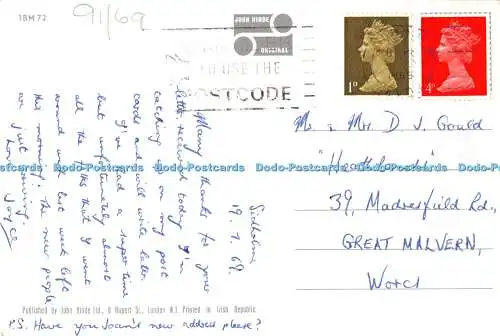 1BM72
91/69
JOHN HINDE
ORIGINAL
TO USE THE
POSTCODE
1D
4D
Sidholme,
19.9.69.
Many thanks for your
letter, received today. I'm
catching up on my post
cards and will write later.
I've had a super time
but unfortunately almost
all the folks that I went
around with last week left
this morning! The new people
are just arriving
Love
Joyce
P.S. Have you Joan's new address please?
Mr. & Mrs D J. Gould
"Heatherdene"
39, Madresfield Rd.,
GREAT MALVERN,
Worcs
Published by John Hinde Ltd., 6 Rupert St., London W.1. Printed in Irish Republic
Dodo-Postcards Dodo-Postcards Dodo-Postcards Dodo-Postcards